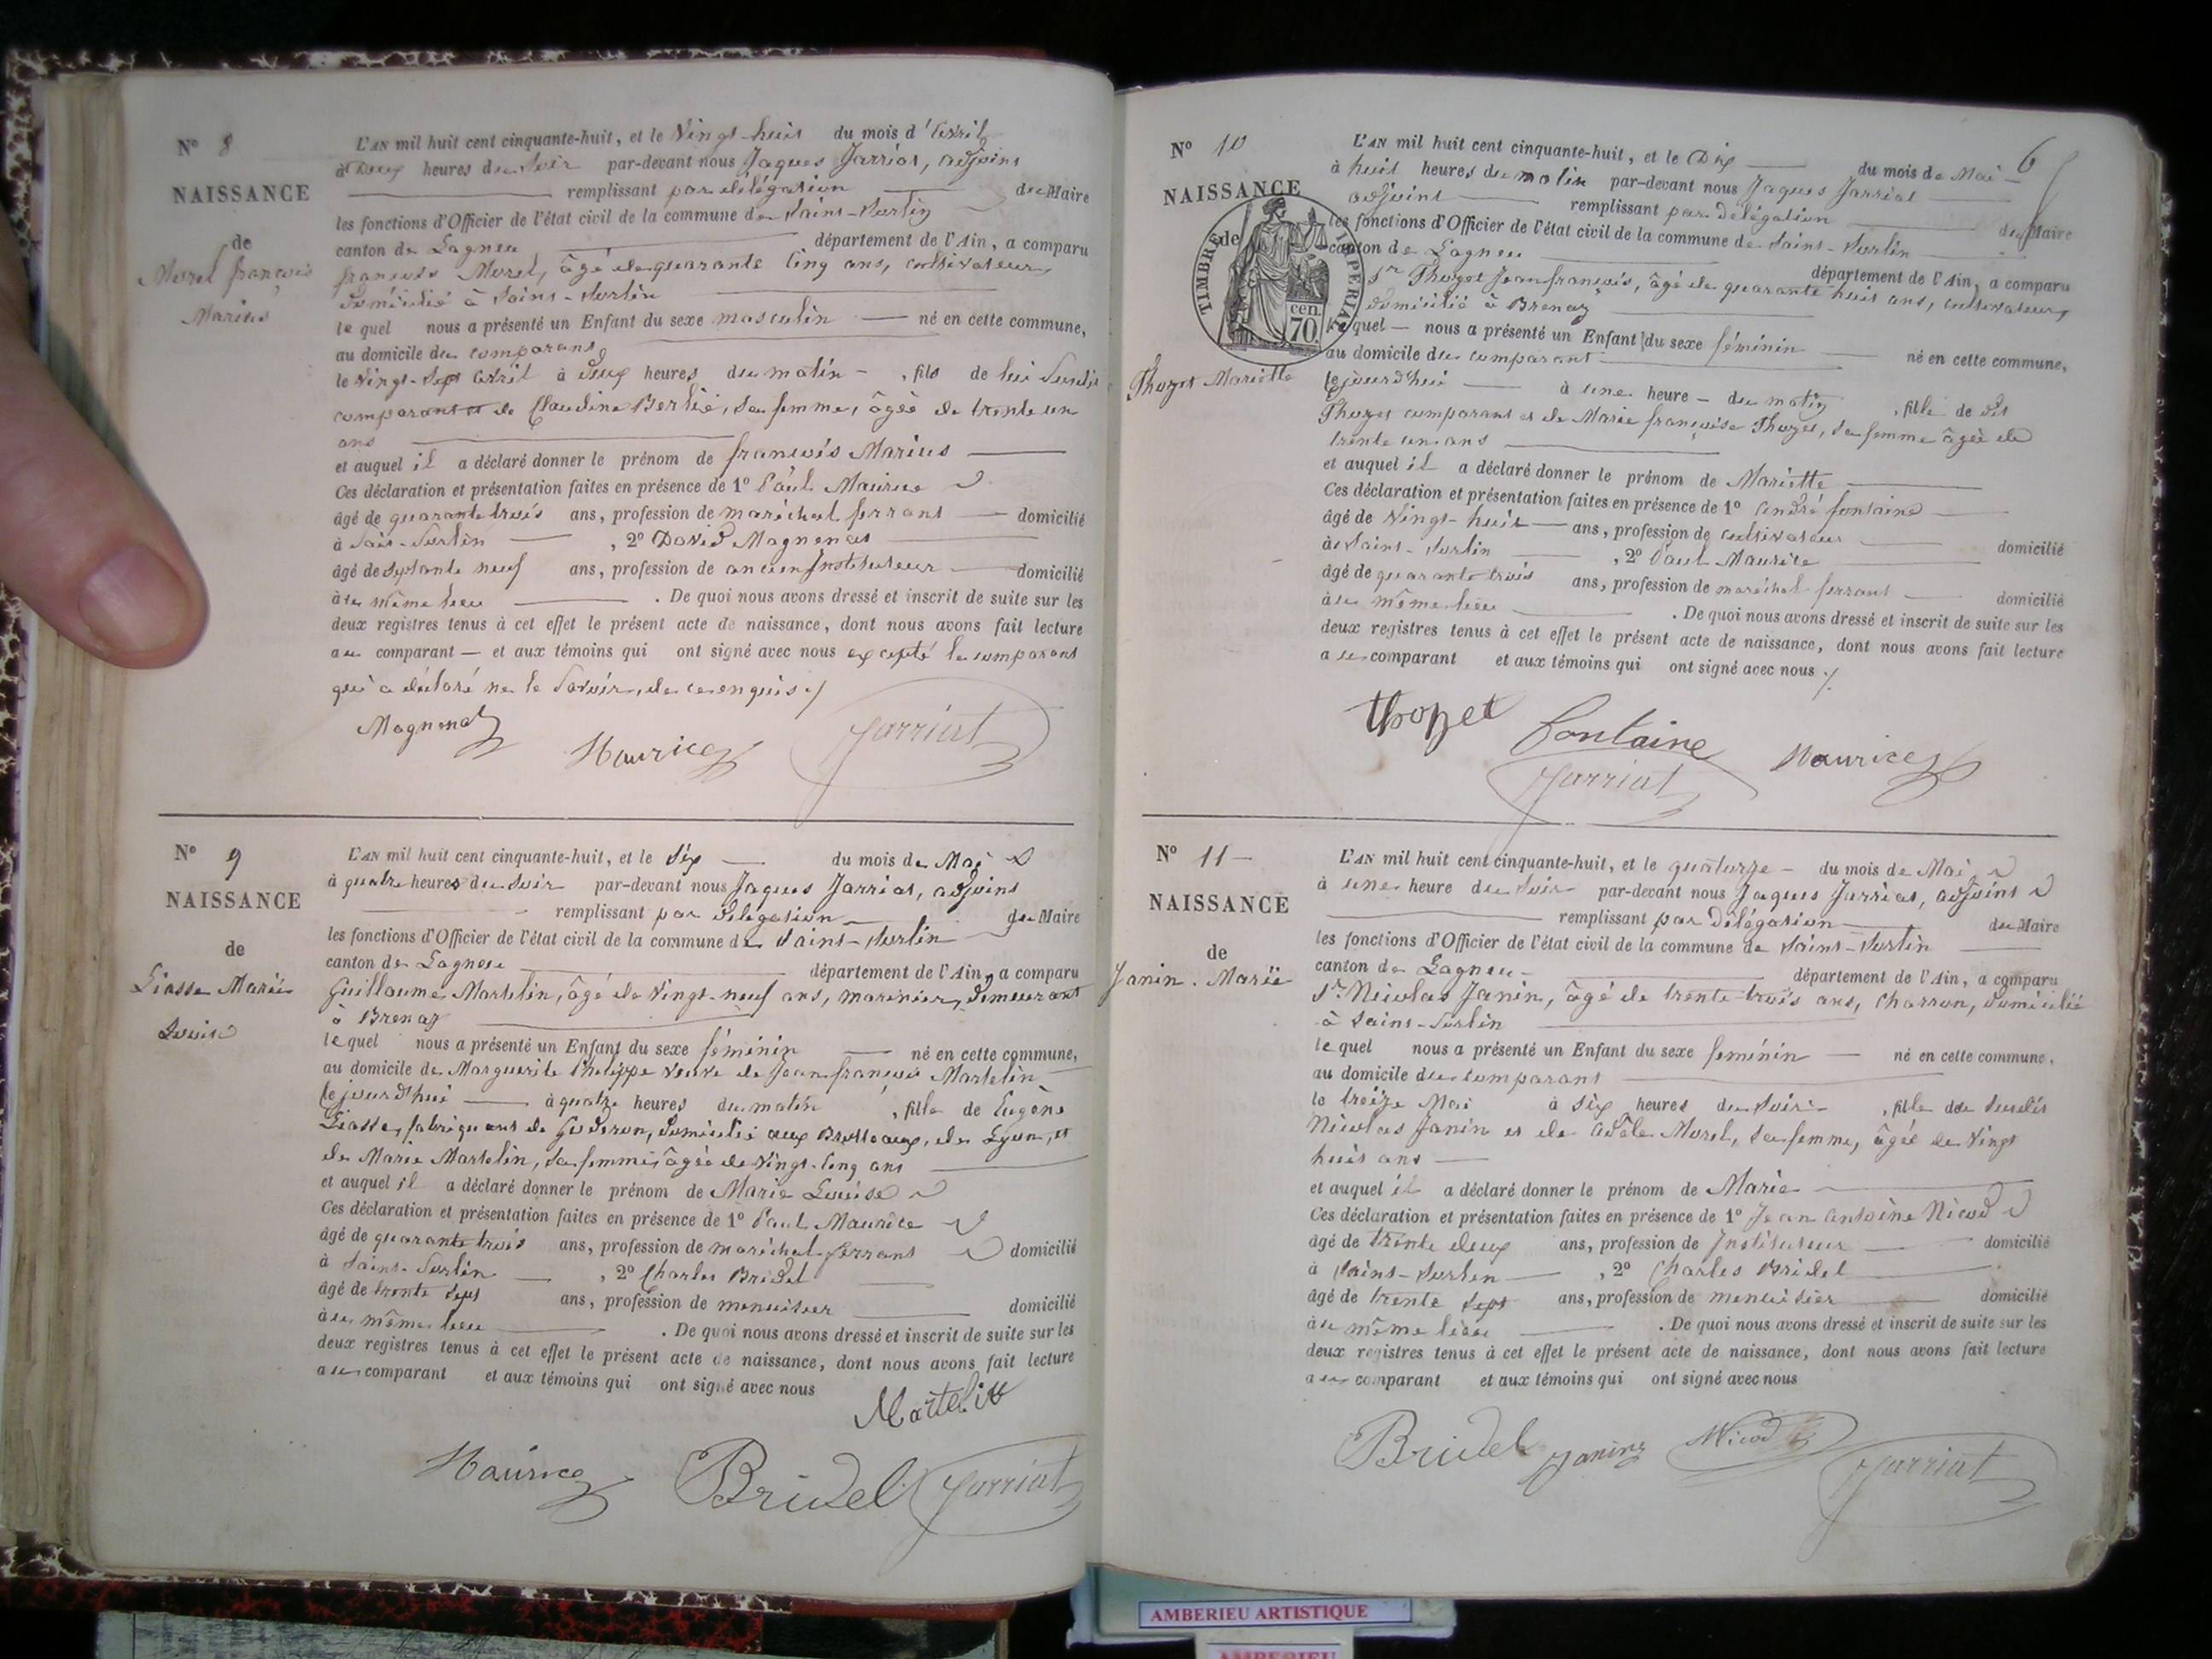 N° 8
NAISSANCE
de
Morel françois
Marius
L'AN mil huit cent cinquante-huit, et le Vingt-huit du mois d'Avril
à Deux heures du Soir par-devant nous Jaques Jarriat, adjoint
remplissant par délégation du Maire
les fonctions d'Officier de l'état civil de la commune de Saint-Sorlin
canton de Lagneu département de l'Ain, a comparu
françois Morel, âgé de quarante Cinq ans, cultivateur,
domicilié à Saint-Sorlin
lequel nous a présenté un Enfant du sexe masculin né en cette commune,
au domicile du comparant
le Vingt-Sept Avril à Deux heures du matin, fils de lui Susdit
comparant et de Claudine Berlié, sa femme, âgée de trente un
ans
et auquel il a déclaré donner le prénom de françois Marius
Ces déclaration et présentation faites en présence de 1° Paul Maurice
âgé de quarante trois ans, profession de maréchal ferrant domicilié
à Sait-Sorlin, 2° David Magnenat
âgé de Septante neuf ans, profession de ancien Instituteur domicilié
à au même lieu. De quoi nous avons dressé et inscrit de suite sur les
deux registres tenus à cet effet le présent acte de naissance, dont nous avons fait lecture
au comparant et aux témoins qui ont signé avec nous excepté le comparant
qui a déclaré ne le Savoir, de ce enquis
Magnenat
Maurice
Jarriat
N° 9
NAISSANCE
de
Liasse Marie
Louise
L'AN mil huit cent cinquante-huit, et le Six du mois de Mai
à quatre heures du Soir par-devant nous Jaques Jarriat, adjoint
remplissant par délégation du Maire
les fonctions d'Officier de l'état civil de la commune de Saint-Sorlin
canton de Lagneu département de l'Ain, a comparu
Guillaume Martelin, âgé de Vingt-neuf ans, marinier, demeurant
à Brenaz
lequel nous a présenté un Enfant du sexe féminin né en cette commune,
au domicile de Marguerite Philippe veuve de Jean françois Martelin
cejourd'hui à quatre heures du matin, fille de Eugène
Liasse, fabriquant de Goderon, domicilié aux Brotteaux, de Lyon, et
de Marie Martelin, sa femme, âgée de Vingt-Cinq ans
et auquel il a déclaré donner le prénom de Marie Louise
Ces déclaration et présentation faites en présence de 1° Paul Maurice
âgé de quarante trois ans, profession de maréchal ferrant domicilié
à Saint-Sorlin, 2° Charles Bridel
âgé de trente Sept ans, profession de menuisier domicilié
à au même lieu. De quoi nous avons dressé et inscrit de suite sur les
deux registres tenus à cet effet le présent acte de naissance, dont nous avons fait lecture
au comparant et aux témoins qui ont signé avec nous
Martelin
Maurice
Bridel
Jarriat
6
N° 10
NAISSANCE
de
TIMBRE IMPERIAL
cen.
70
Thozet Mariette
L'AN mil huit cent cinquante-huit, et le Dix du mois de Mai
à huit heures du matin par-devant nous Jaques Jarriat
adjoint remplissant par délégation du Maire
les fonctions d'Officier de l'état civil de la commune de Saint-Sorlin
canton de Lagneu département de l'Ain, a comparu
Sr Thozet Jean françois, âgé de quarante huit ans, cultivateur,
domicilié à Brenaz
lequel nous a présenté un Enfant du sexe féminin né en cette commune,
au domicile du comparant
cejourd'hui à une heure du matin, fille de dit
Thozet comparant et de Marie françoise Thozet, sa femme âgée de
trente un ans
et auquel il a déclaré donner le prénom de Mariette
Ces déclaration et présentation faites en présence de 1° André fontaine
âgé de Vingt-huit ans, profession de cultivateur domicilié
à Saint-Sorlin, 2° Paul Maurice
âgé de quarante trois ans, profession de maréchal ferrant domicilié
à au même lieu. De quoi nous avons dressé et inscrit de suite sur les
deux registres tenus à cet effet le présent acte de naissance, dont nous avons fait lecture
au comparant et aux témoins qui ont signé avec nous
thozet
fontaine
Maurice
Jarriat
N° 11
NAISSANCE
de
Janin. Marie
L'AN mil huit cent cinquante-huit, et le quatorze du mois de Mai
à une heure du Soir par-devant nous Jaques Jarriat, adjoint
remplissant par délégation du Maire
les fonctions d'Officier de l'état civil de la commune de Saint-Sorlin
canton de Lagneu département de l'Ain, a comparu
Sr Nicolas Janin, âgé de trente trois ans, Charron, domicilié
à Saint-Sorlin
lequel nous a présenté un Enfant du sexe féminin né en cette commune.
au domicile du comparant
le treize Mai à six heures du Soir, fille de Susdit
Nicolas Janin et de Adèle Morel, sa femme, âgée de Vingt
huit ans
et auquel il a déclaré donner le prénom de Marie
Ces déclaration et présentation faites en présence de 1° Jean Antoine Nicod
âgé de trente deux ans, profession de Instituteur domicilié
à Saint-Sorlin, 2° Charles Bridel
âgé de trente Sept ans, profession de menuisier domicilié
à au même lieu. De quoi nous avons dressé et inscrit de suite sur les
deux registres tenus à cet effet le présent acte de naissance, dont nous avons fait lecture
au comparant et aux témoins qui ont signé avec nous
Bridel
Janin
Nicod
Jarriat
AMBERIEU ARTISTIQUE
AMBERIEU